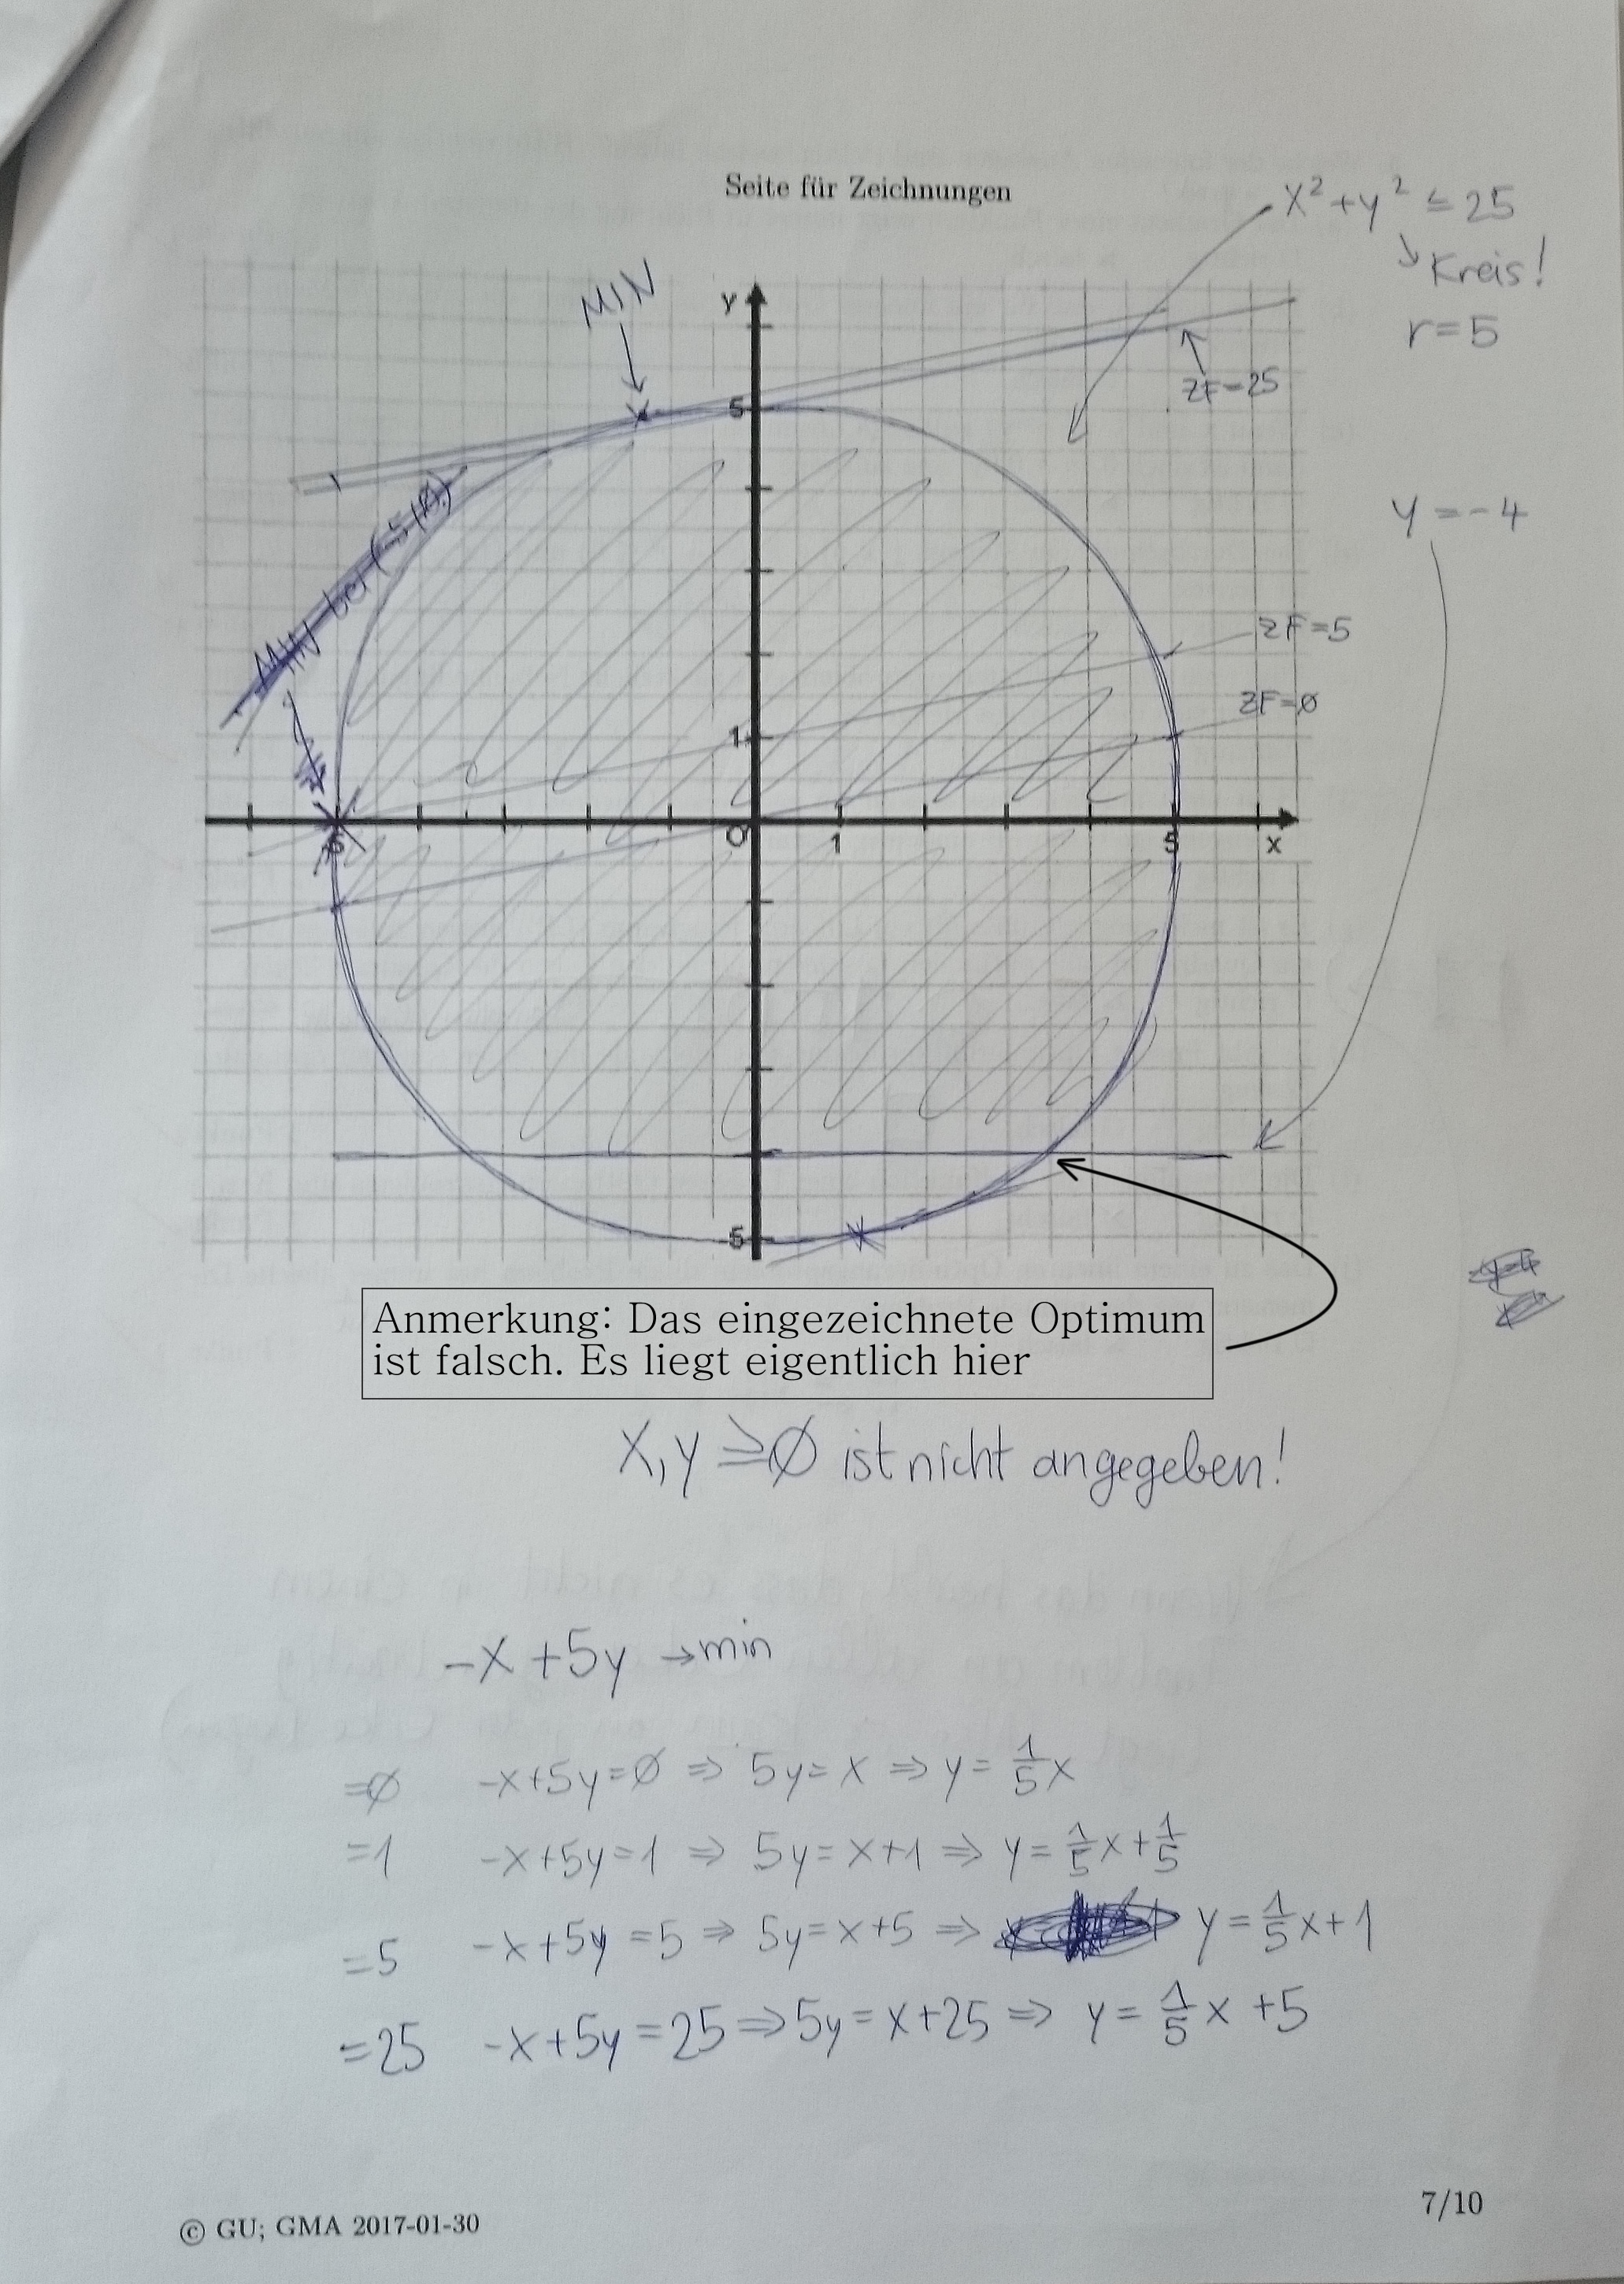 Seite für Zeichnungen
x² + y² ≤ 25
↘ Kreis!
r = 5
MIN
y
ZF = 25
5
y = -4
MIN bei (-5|0)
ZF = 5
ZF = ∅
1
-5
O
1
5
x
-5
Anmerkung: Das eingezeichnete Optimum
ist falsch. Es liegt eigentlich hier
x, y ≥ ∅ ist nicht angegeben!
-x + 5y → min
=∅ -x+5y=∅ ⇒ 5y = x ⇒ y = 1/5 x
=1 -x+5y=1 ⇒ 5y = x+1 ⇒ y = 1/5 x + 1/5
=5 -x+5y=5 ⇒ 5y = x+5 ⇒ y = 1/5 x + 1
=25 -x+5y=25 ⇒ 5y = x+25 ⇒ y = 1/5 x + 5
© GU; GMA 2017-01-30
7/10